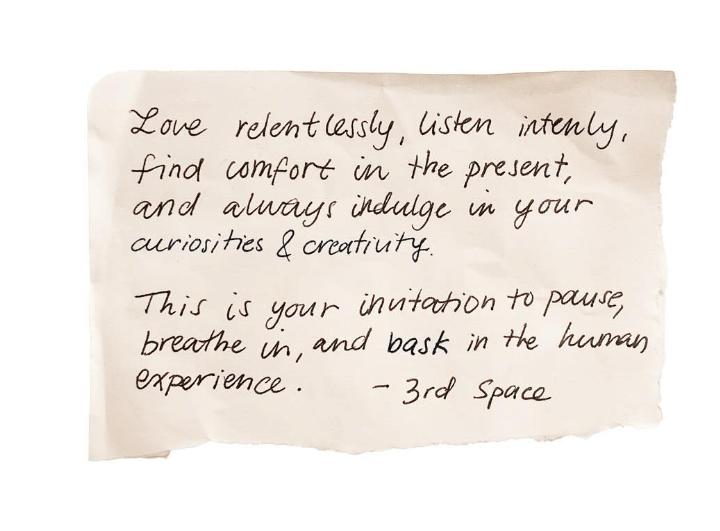 Love relentlessly, listen intenly,
find comfort in the present,
and always indulge in your
curiosities & creativity.
This is your invitation to pause,
breathe in, and bask in the human
experience. - 3rd Space